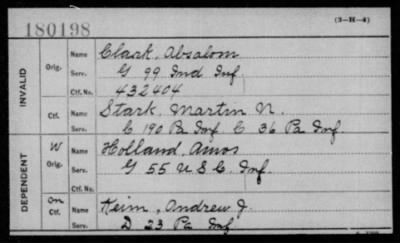 180198
(3-H-4)
INVALID
Orig.
Name Clark, Absalom
Serv. G 99 Ind Inf.
Ctf. No. 432404
Ctf.
Name Stark, Martin N.
Serv. C 190 Pa Inf. C 36 Pa Inf
DEPENDENT
W
Orig.
Name Holland, Amos
Serv. G 55 U S C. Inf.
Ctf. No.
On
Ctf.
Name Keim, Andrew J.
Serv. D 23 Pa Inf